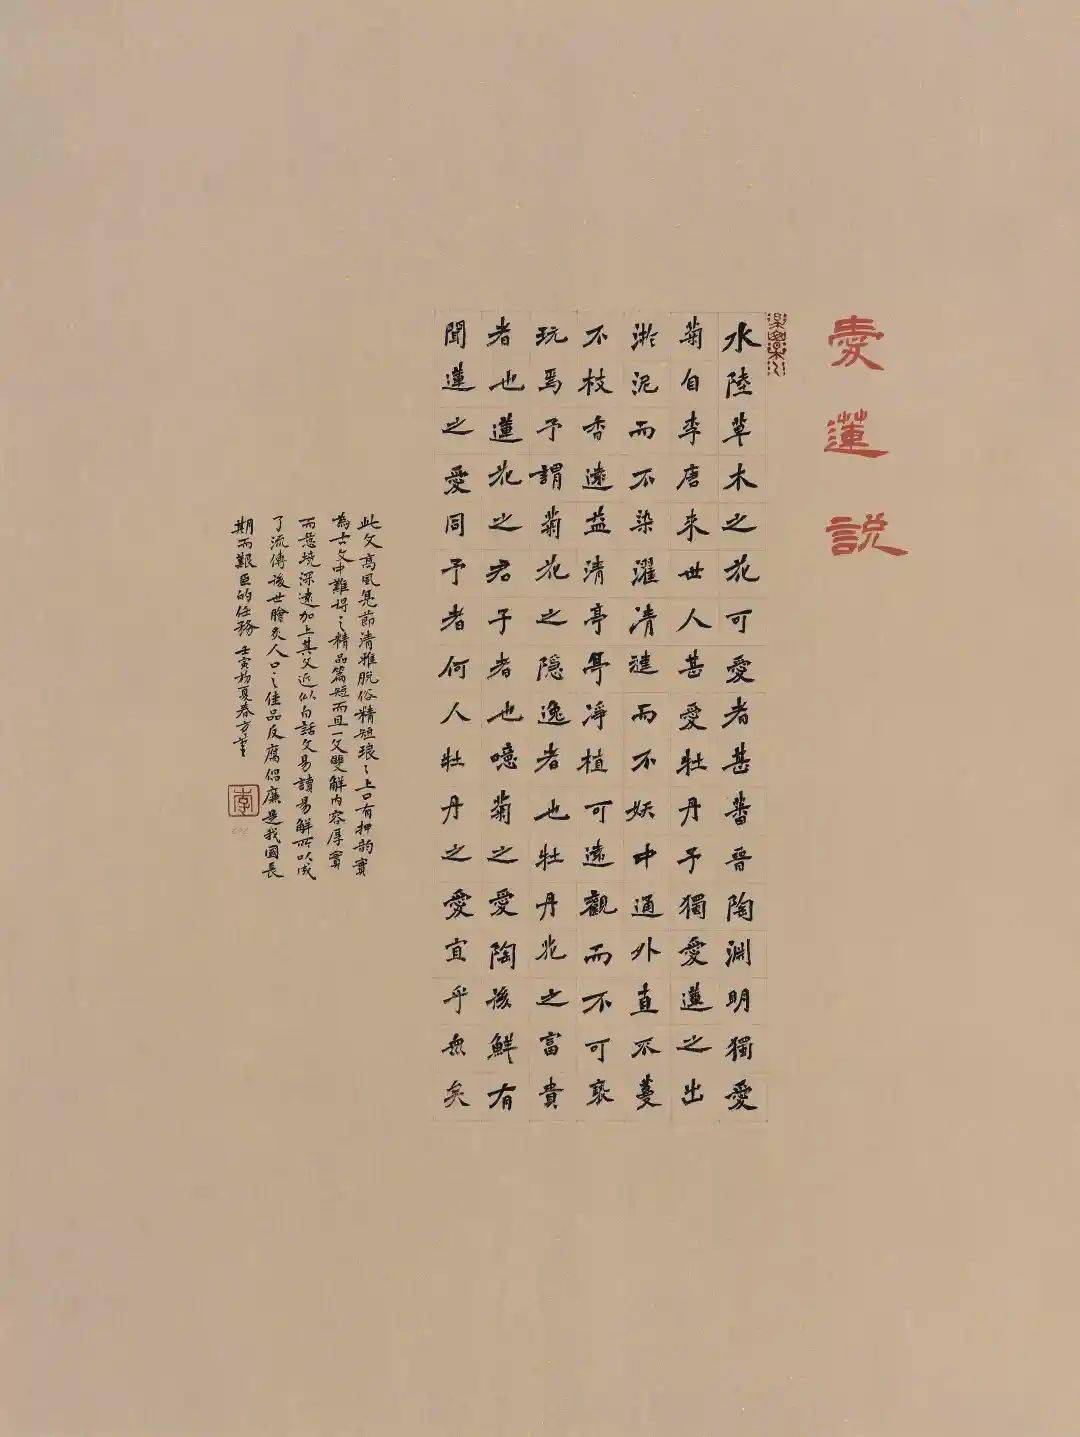 愛蓮説
水陸草木之花可愛者甚蕃晉陶渊明獨愛
菊自李唐来世人甚愛牡丹予獨愛蓮之出
淤泥而不染濯清漣而不妖中通外直不蔓
不枝香遠益清亭亭净植可遠觀而不可褻
玩焉予謂菊花之隱逸者也牡丹花之富貴
者也蓮花之君子者也噫菊之愛陶後鮮有
聞蓮之愛同予者何人牡丹之愛宜乎無矣
此文高風亮節清雅脱俗精短琅々上口有押韵實
為古文中難得之精品篇短而且一文雙解内容厚實
而意境深遠加上其文近似白話文易讀易解所以成
了流傳後世膾炙人口之佳品反腐倡廉是我國長
期而艱巨的任務 壬寅初夏春方
李